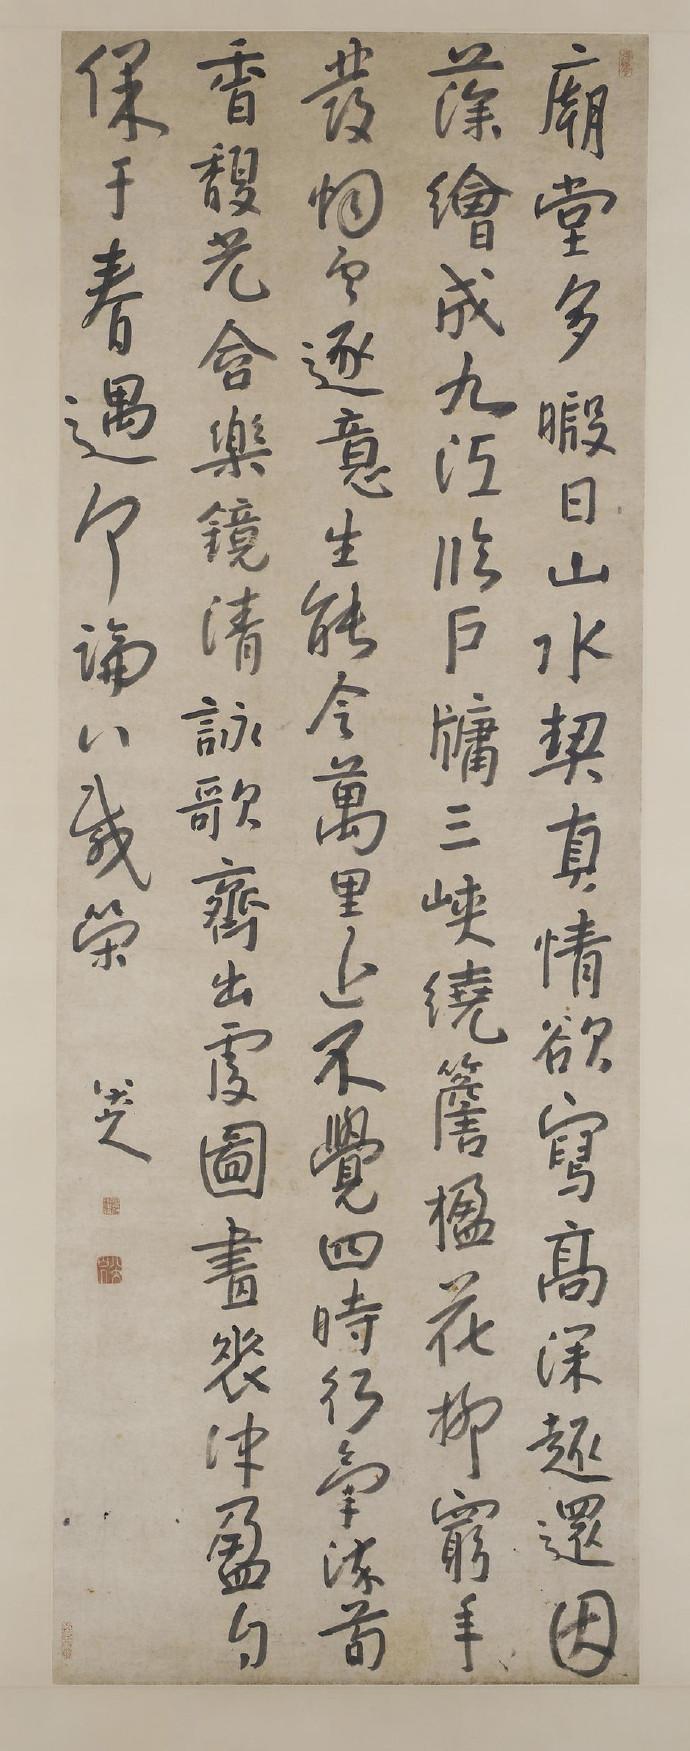 廟堂多暇日山水契真情欲寫高深趣還因
藻繪成九江臨戶牖三峽繞簷楹花柳窮年
發烟雲逐意生能令萬里近不覺四時行氣染荀
香馥光含樂鏡清詠歌齊出處圖畫裝沖盈自
保千春遇何論八載榮
八大山人